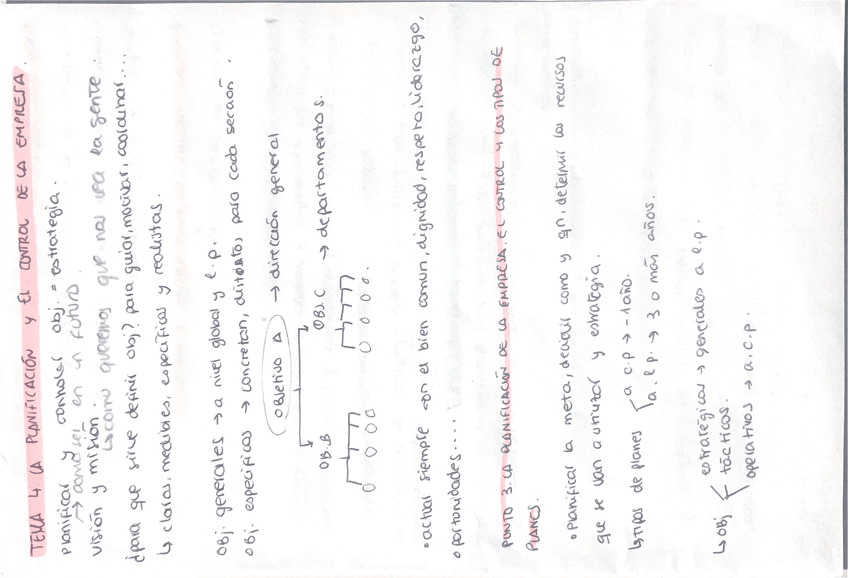 TEMA 4. LA PLANIFICACIÓN Y EL CONTROL DE LA EMPRESA.
Planificar y controlar obj. = estrategia.
→ como ser en un futuro.
Visión y misión.
↳ como queremos que nos vea la gente.
¿para que sirve definir obj? para guiar, motivar, coordinar...
↳ claros, medibles, específicos y realistas.
Obj. generales → a nivel global y l.p.
Obj. específicos → concretan, distintos, para cada sección.
objetivo A → dirección general
OB.B OBJ.C → departamentos.
• actuar siempre con el bien comun, dignidad, respeto, liderazgo,
oportunidades....
PUNTO 3. LA PLANIFICACIÓN DE LA EMPRESA. EL CONTROL Y LOS TIPOS DE
PLANES.
• Planificar la meta, decidir como y qn, determinar los recursos
que se van a utilizar y estrategia.
↳ tipos de planes
a c.p → -1 año.
a. l.p. → 3 o más años.
↳ obj
estratégicos → generales a l.p.
tácticos.
operativos → a. c.p.